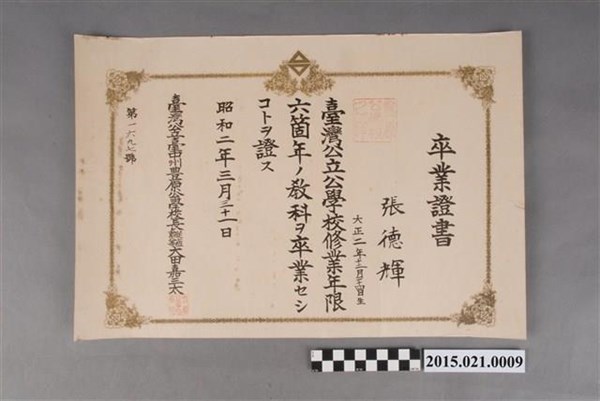 卒業證書
張德輝
大正二年十二月二十日生
臺灣公立公學校修業年限
六箇年ノ教科ヲ卒業セシ
コトヲ證ス
昭和二年三月二十一日
臺灣公立臺中州豐原公學校長 太田嘉太
第一六九七號
2015.021.0009